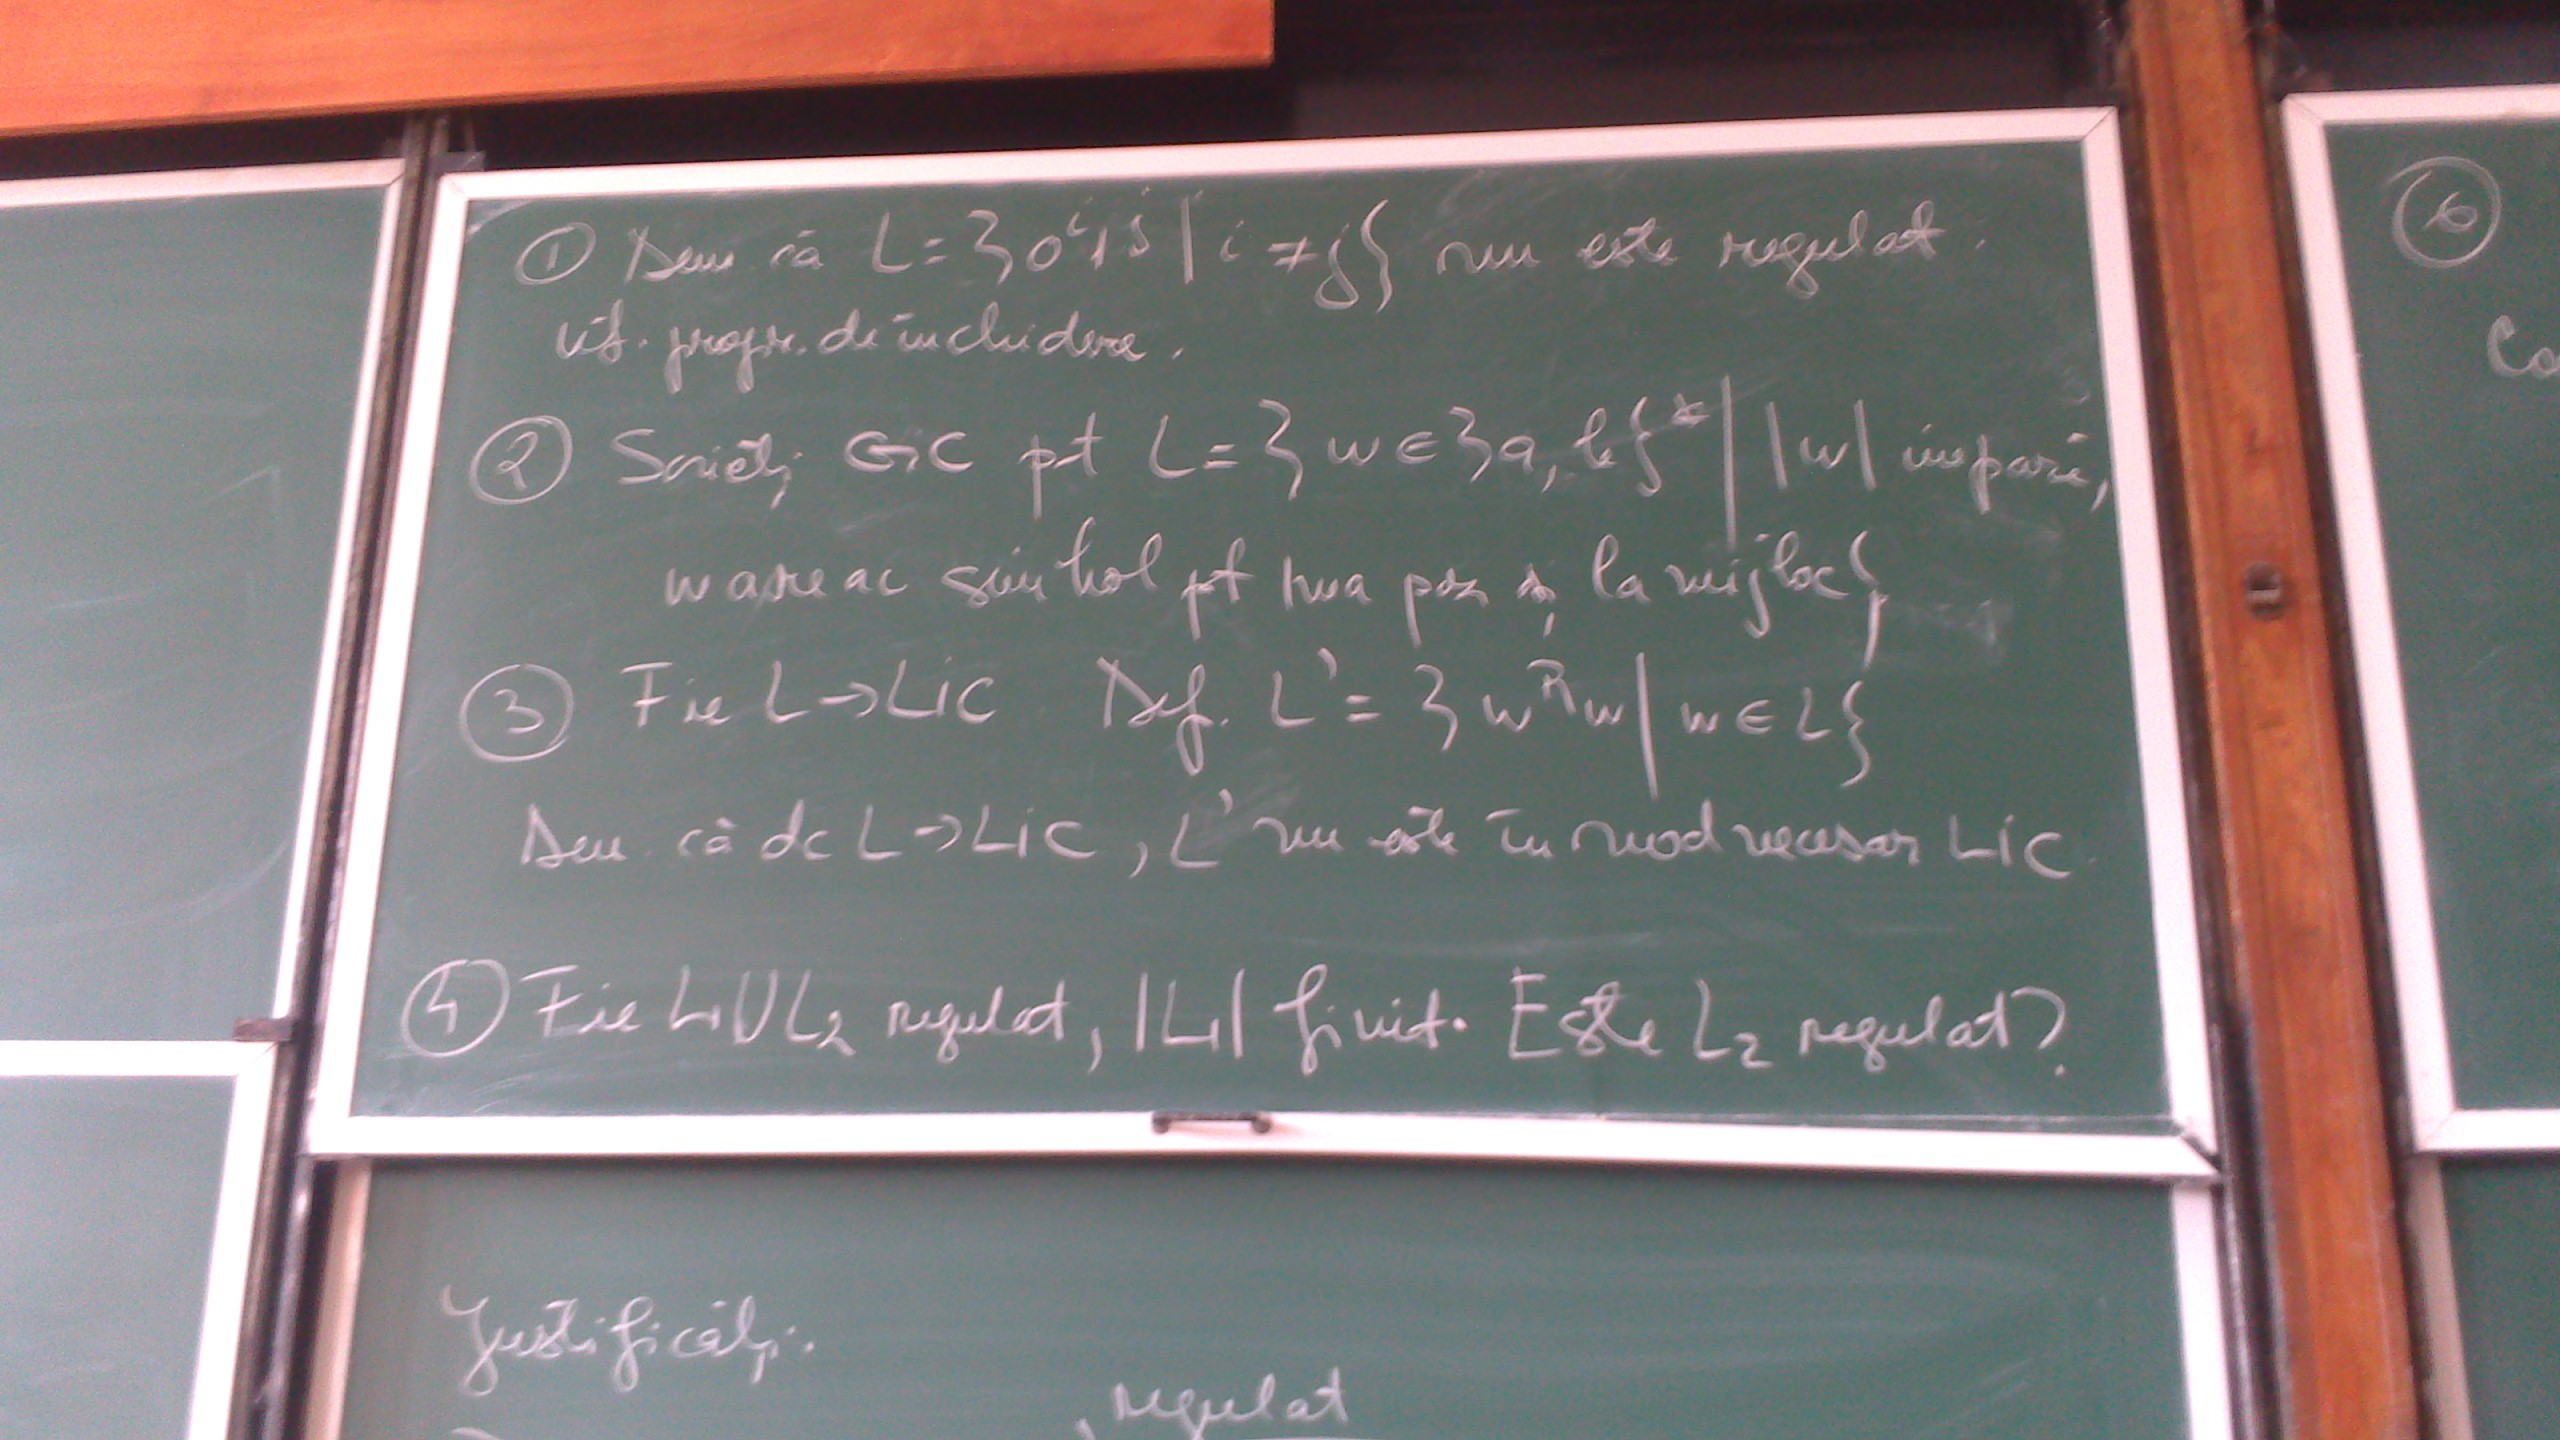 ① Dem că L = {0^i 1^j | i ≠ j} nu este regulat.
ut. propr. de închidere.
② Scrieți GIC pt L = {w ∈ {a, b}* | |w| impară,
w are ac simbol pt prima poz și la mijloc}
③ Fie L → LIC Def. L' = {w^R w | w ∈ L}
Dem că dc L → LIC, L' nu este în mod necesar LIC
④ Fie L1 ∪ L2 regulat, |L1| finit. Este L2 regulat?
Justificați.
, regulat
⑥
Co